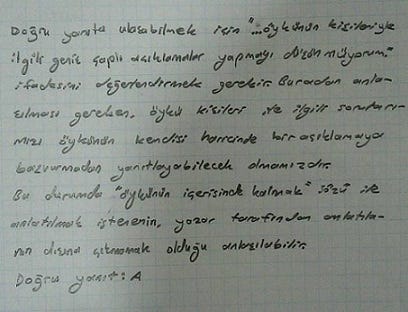 Doğru yanıta ulaşabilmek için "...öykünün kişileriyle
ilgili geniş çaplı açıklamalar yapmayı düşünmüyorum."
ifadesini değerlendirmek gerekir. Buradan anla-
şılması gereken, öykü kişileri ile ilgili soruları-
mızı öykünün kendisi haricinde bir açıklamaya
başvurmadan yanıtlayabilecek olmamızdır.
Bu durumda "öykünün içerisinde kalmak" sözü ile
anlatılmak istenenin, yazar tarafından anlatıla-
nın dışına çıkmamak olduğu anlaşılabilir.
Doğru yanıt: A